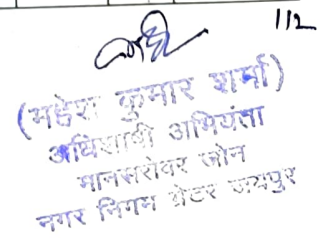 112
(महेश कुमार शर्मा)
अधिशाषी अभियंता
मानसरोवर जोन
नगर निगम ग्रेटर जयपुर